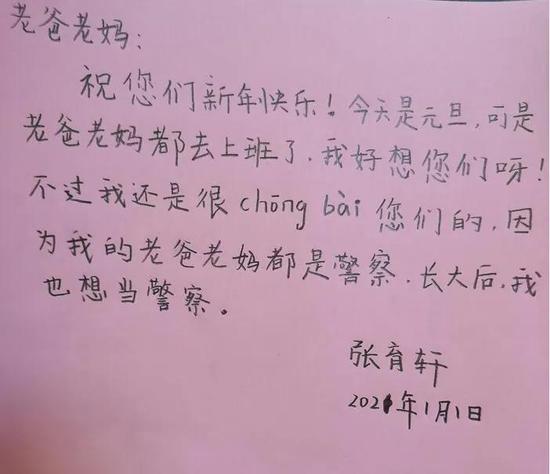 老爸老妈:
祝您们新年快乐!今天是元旦,可是
老爸老妈都去上班了,我好想您们呀!
不过我还是很chōng bài您们的,因
为我的老爸老妈都是警察,长大后,我
也想当警察。
张育轩
2021年1月1日